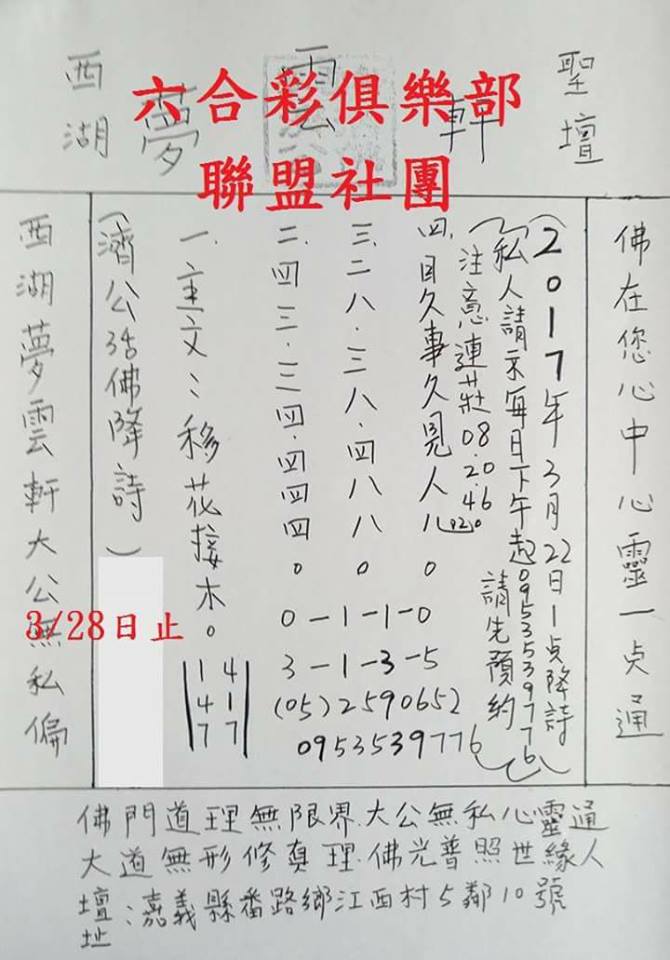 六合彩俱樂部
聯盟社團
西湖 夢 雲 軒 聖壇
佛在您心中心靈一点通
(2017年3月22日1点降詩)
(私人請示每日下午起0953539776)
注意連莊08.20.46 請先預約
四.目久事久見人心020。
三.二八.三八.四八八。
二.四三.三四.四四四。
一.主文:移花接木。
(濟公活佛降詩)
0-1-1-0
3-1-3-5
(05)2590652
0953539776
14
41
77
西湖夢雲軒大公無私偏
3/28日止
佛門道理無限界.大公無私心靈通
大道無形修真理.佛光普照世緣人
壇址:嘉義縣番路鄉江西村5鄰10號